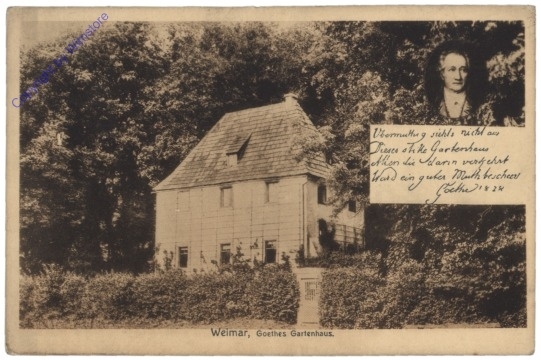 Übermüthig sieht's nicht aus
Dieses stille Gartenhaus
Allen die darin verkehrt
Ward ein guter Muth bescheert
Goethe 1828
Weimar, Goethes Gartenhaus.